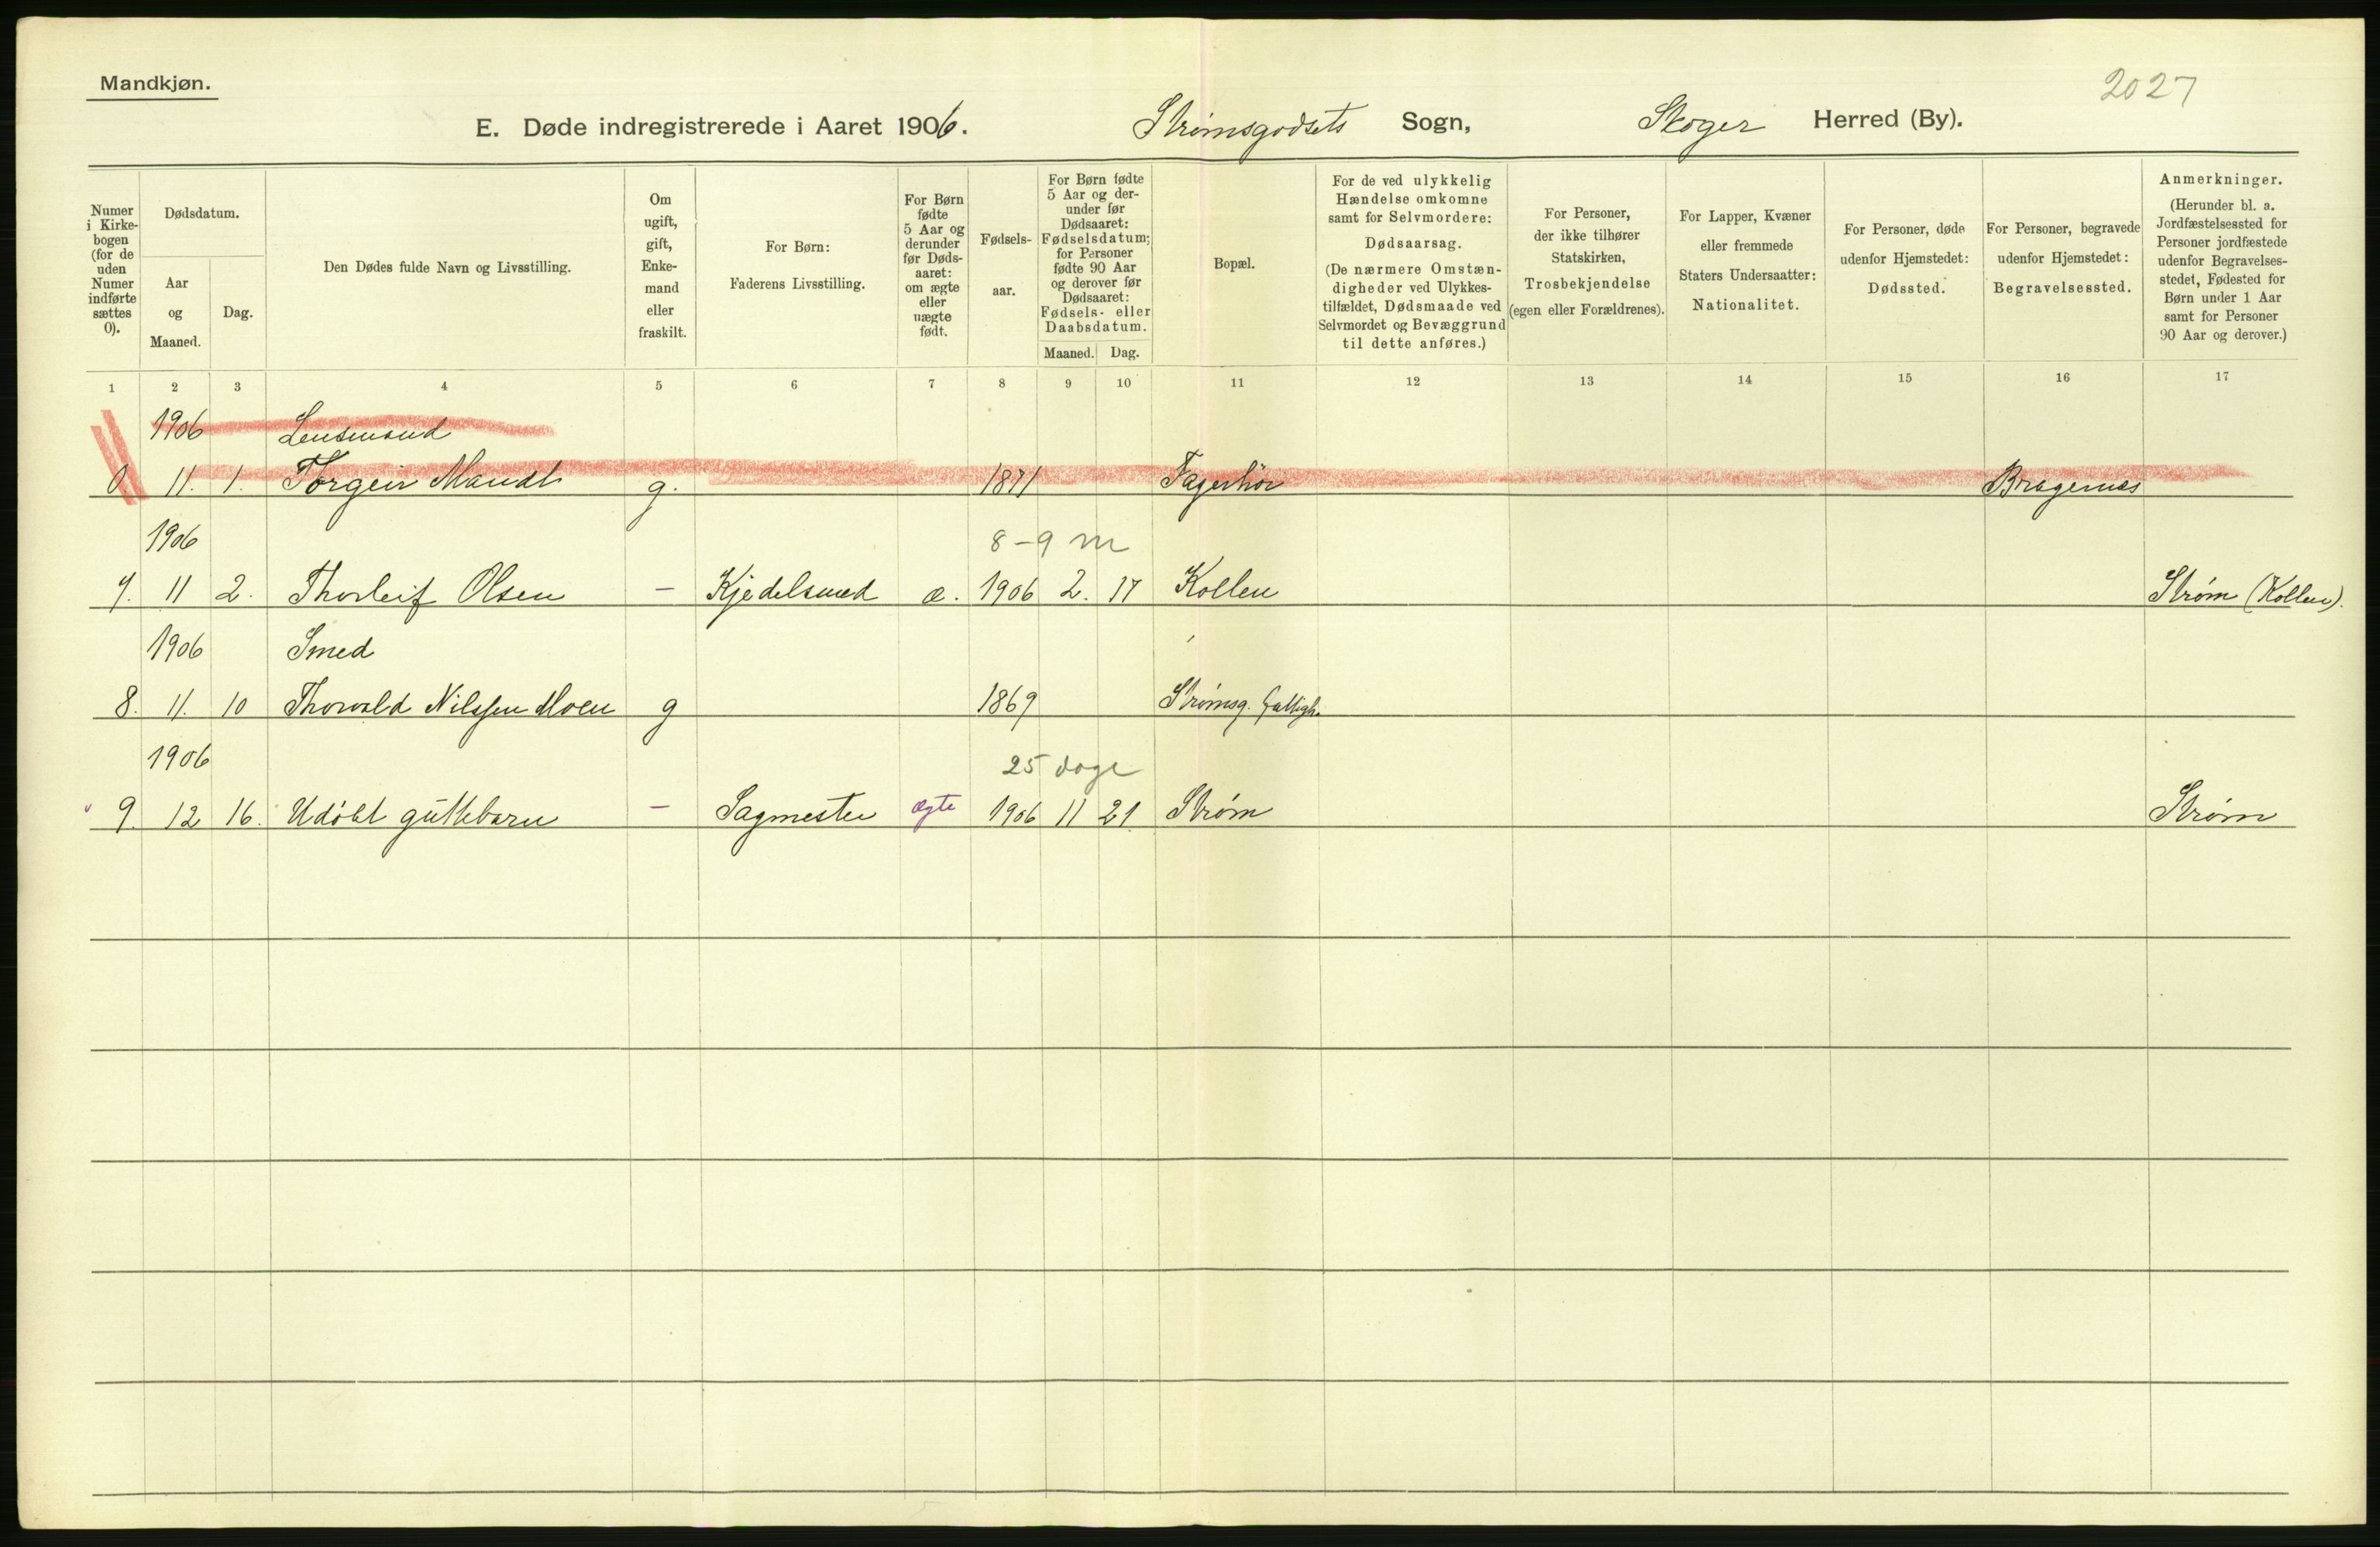 Mandkjøn.
2027
E. Døde indregistrerede i Aaret 1906. Strømsgodsets Sogn, Skoger Herred (By).
Numer i Kirkebogen (for de uden Numer indførte sættes 0).
Dødsdatum.
Aar og Maaned.
Dag.
Den Dødes fulde Navn og Livsstilling.
Om ugift, gift, Enkemand eller fraskilt.
For Børn: Faderens Livsstilling.
For Børn fødte 5 Aar og derunder før Dødsaaret: om ægte eller uægte født.
Fødselsaar.
For Børn fødte 5 Aar og derunder før Dødsaaret: Fødselsdatum; for Personer fødte 90 Aar og derover før Dødsaaret: Fødsels- eller Daabsdatum.
Maaned. Dag.
Bopæl.
For de ved ulykkelig Hændelse omkomne samt for Selvmordere: Dødsaarsag. (De nærmere Omstændigheder ved Ulykkestilfældet, Dødsmaade ved Selvmordet og Bevæggrund til dette anføres.)
For Personer, der ikke tilhører Statskirken, Trosbekjendelse (egen eller Forældrenes).
For Lapper, Kvæner eller fremmede Staters Undersaatter: Nationalitet.
For Personer, døde udenfor Hjemstedet: Dødssted.
For Personer, begravede udenfor Hjemstedet: Begravelsessted.
Anmerkninger. (Herunder bl. a. Jordfæstelsessted for Personer jordfæstede udenfor Begravelsesstedet, Fødested for Børn under 1 Aar samt for Personer 90 Aar og derover.)
1 2 3 4 5 6 7 8 9 10 11 12 13 14 15 16 17
1906 Lensmand
0 11. 1. Torgeir Mandt g. 1871 Bragernes
1906 8-9 m
7. 11 2. Thorleif Olsen - Kjedelsmed æ. 1906 2. 17 Kollen Strøm (Kollen).
1906 Smed
8. 11. 10 Thorvald Nilssen Moen g 1869 Strømsg. Fattigh.
1906 25 dage
9. 12 16. Udøbt guttebarn - Sagmester ægte 1906 11 21 Strøm Strøm